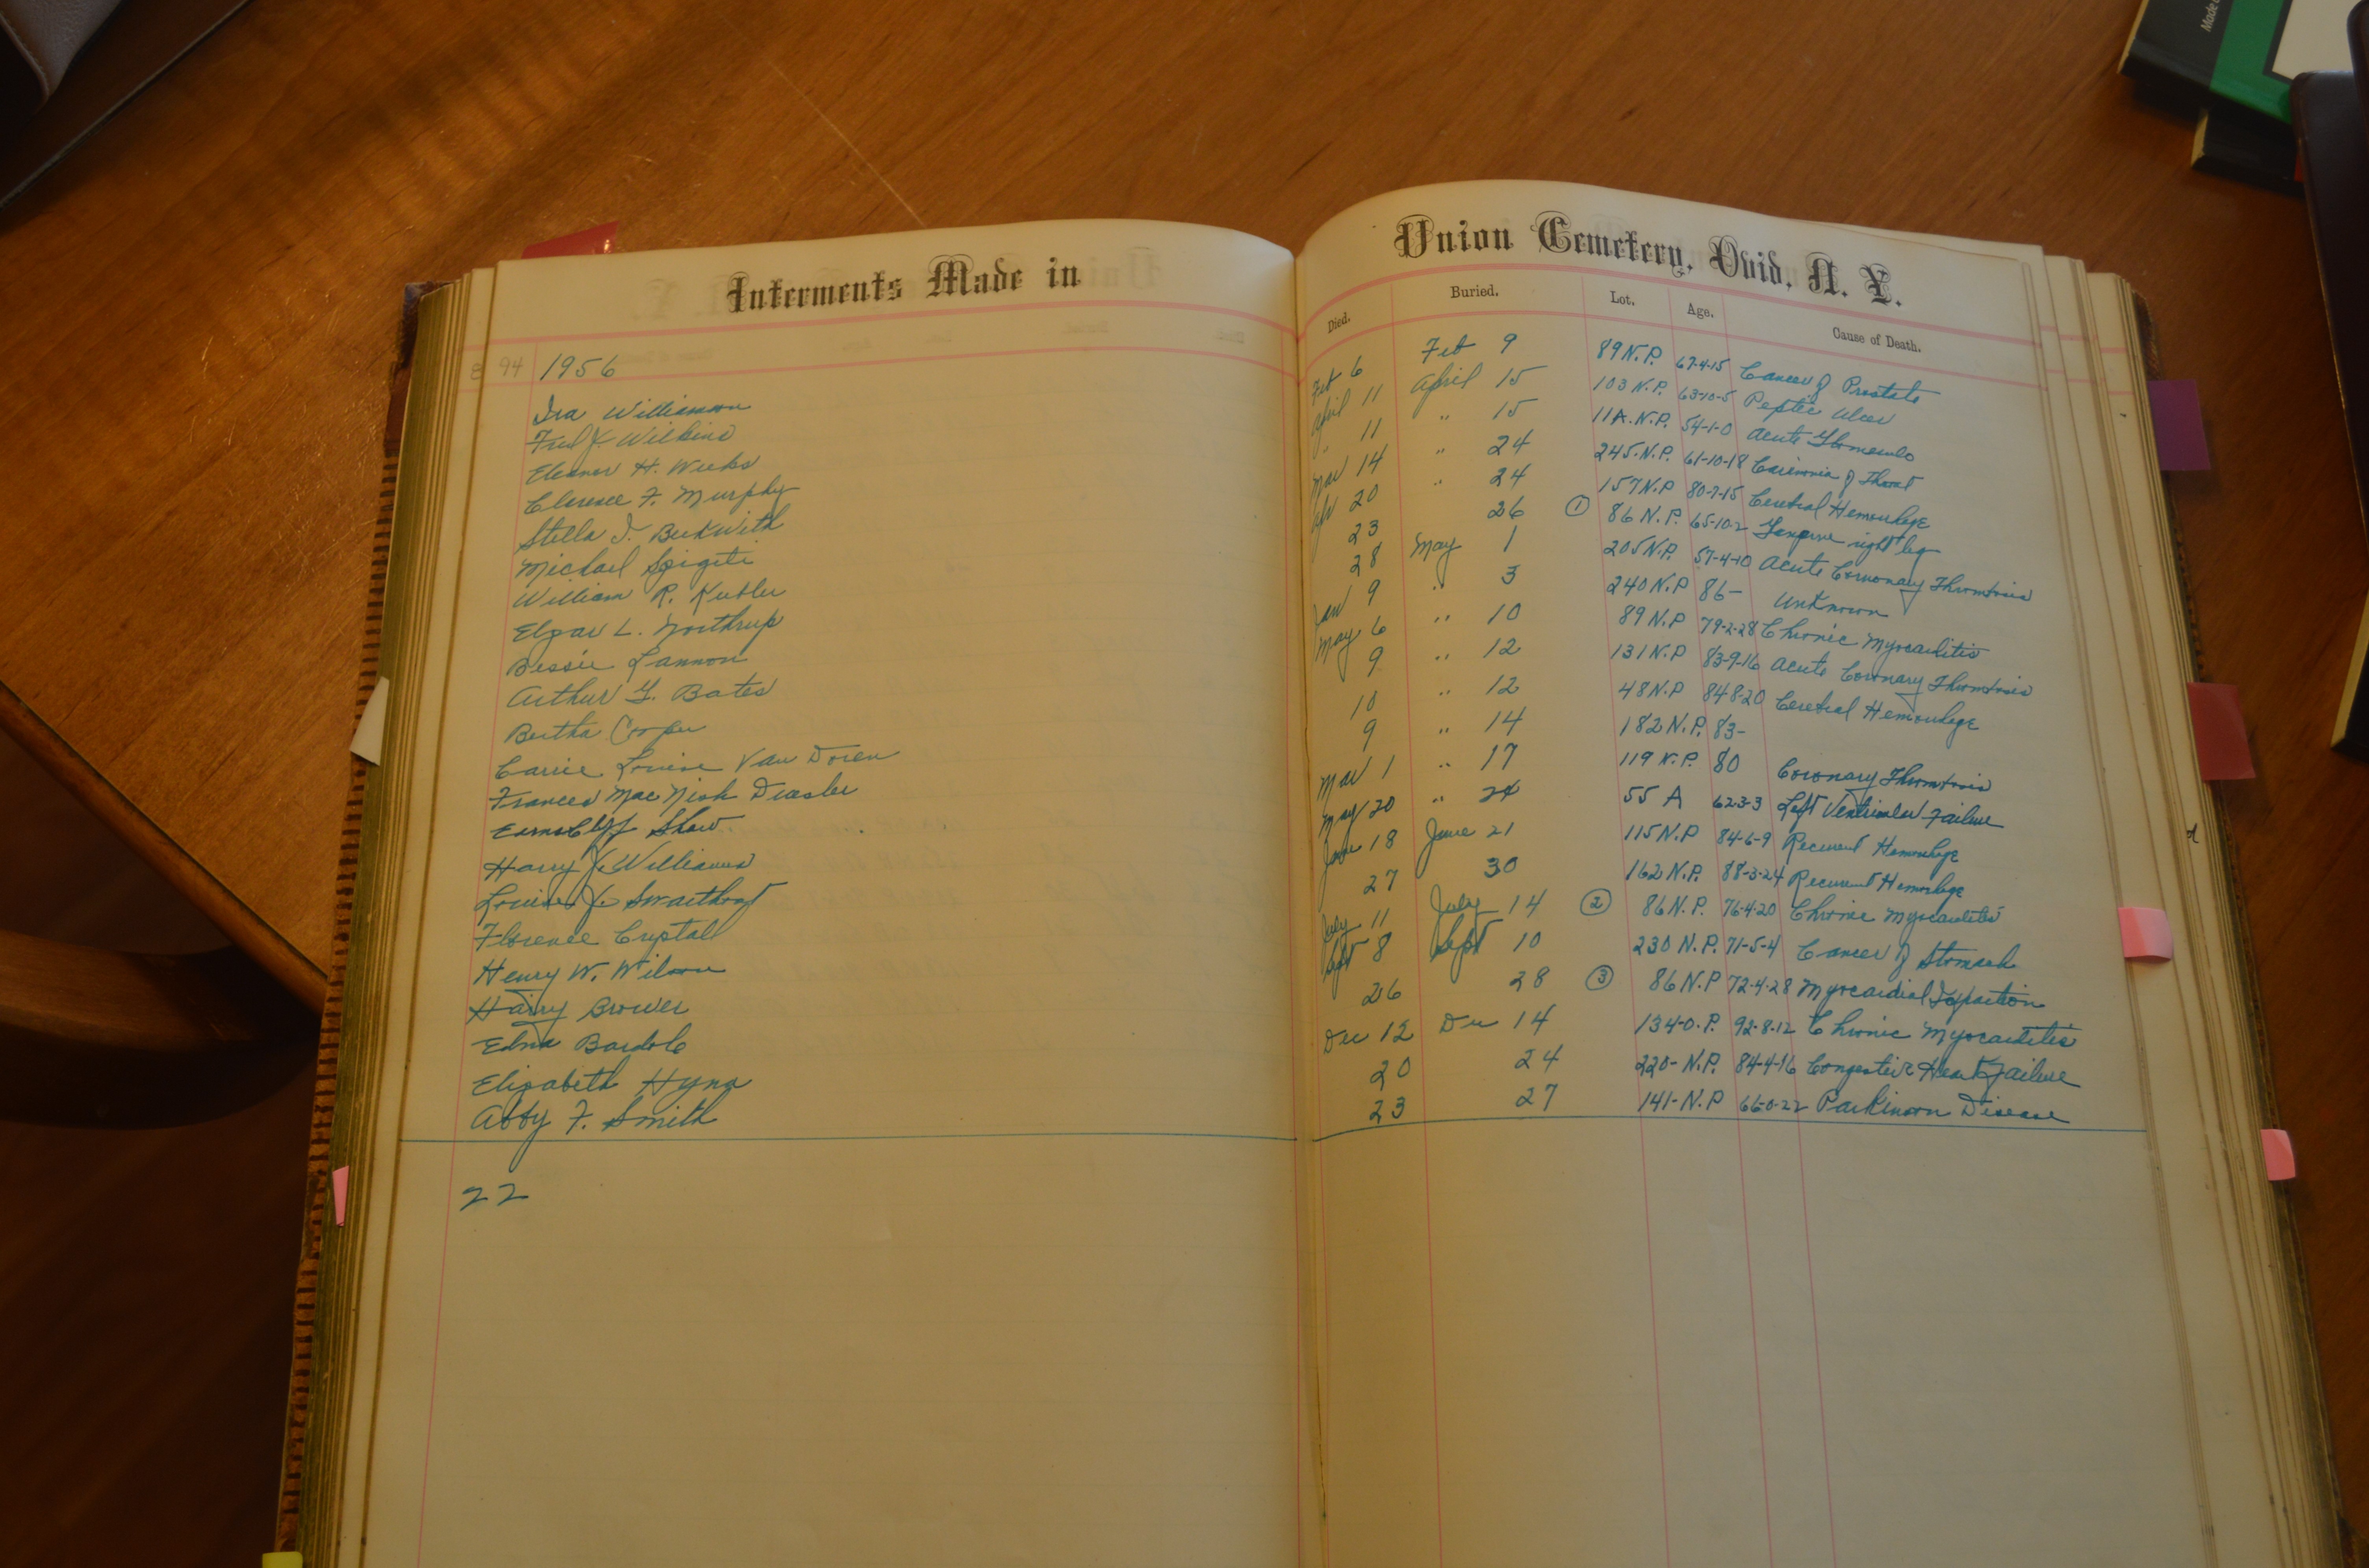 Made
Interments Made in
94 1956
Ira Williamson
Fred J. Wilkins
Eleanor H. Weeks
Clarence F. Murphy
Stella I. Beckwith
Michael
William R. Kubler
L. Northrup
Bessie Lannon
Arthur G. Bates
Bertha Cooper
Carrie Louise Van Doren
Frances Mac Nish
Shaw
Harry J. Williams
Louise J. Swarthout
Florence Crystall
Henry W. Wilson
Harry Brower
Edna
Elizabeth
Abby F. Smith
22
Union Cemetery, Ovid, N. Y.
Died. Buried. Lot. Age. Cause of Death.
Feb 6 Feb 9 89 N.P. 67-4-15 Cancer of Prostate
April 11 April 15 103 N.P. 63-10-5 Peptic Ulcer
" 11 " 15 11A. N.P. 54-1-0 Acute
Mar 14 " 24 245. N.P. 61-10-18 of Throat
Apr 20 " 24 157 N.P 80-7-15 Cerebral Hemorrhage
23 26 ① 86 N.P. 65-10-2 right leg
28 May 1 205 N.P. 57-4-10 Acute Coronary Thrombosis
Jan 9 " 3 240 N.P 86- Unknown
May 6 " 10 89 N.P 79-2-28 Chronic Myocarditis
9 " 12 131 N.P 83-9-16 Acute Coronary Thrombosis
10 " 12 48 N.P 84 8-20 Cerebral Hemorrhage
9 " 14 182 N.P. 83-
Mar 1 " 17 119 N.P. 80 Coronary Thrombosis
May 20 " 24 55 A 62-3-3 Left Ventricular Failure
June 18 June 21 115 N.P 84-6-9 Recurrent Hemorrhage
27 30 162 N.P. 88-3-24 Recurrent Hemorrhage
July 11 July 14 ② 86 N.P. 76-4-20 Chronic Myocarditis
Sept 8 Sept 10 230 N.P. 71-5-4 Cancer of Stomach
26 28 ③ 86 N.P 72-4-28 Myocardial
Dec 12 Dec 14 134-O.P. 92-8-12 Chronic Myocarditis
20 24 220- N.P. 84-4-16 Congestive Heart Failure
23 27 141- N.P 66-0-22 Parkinson Disease